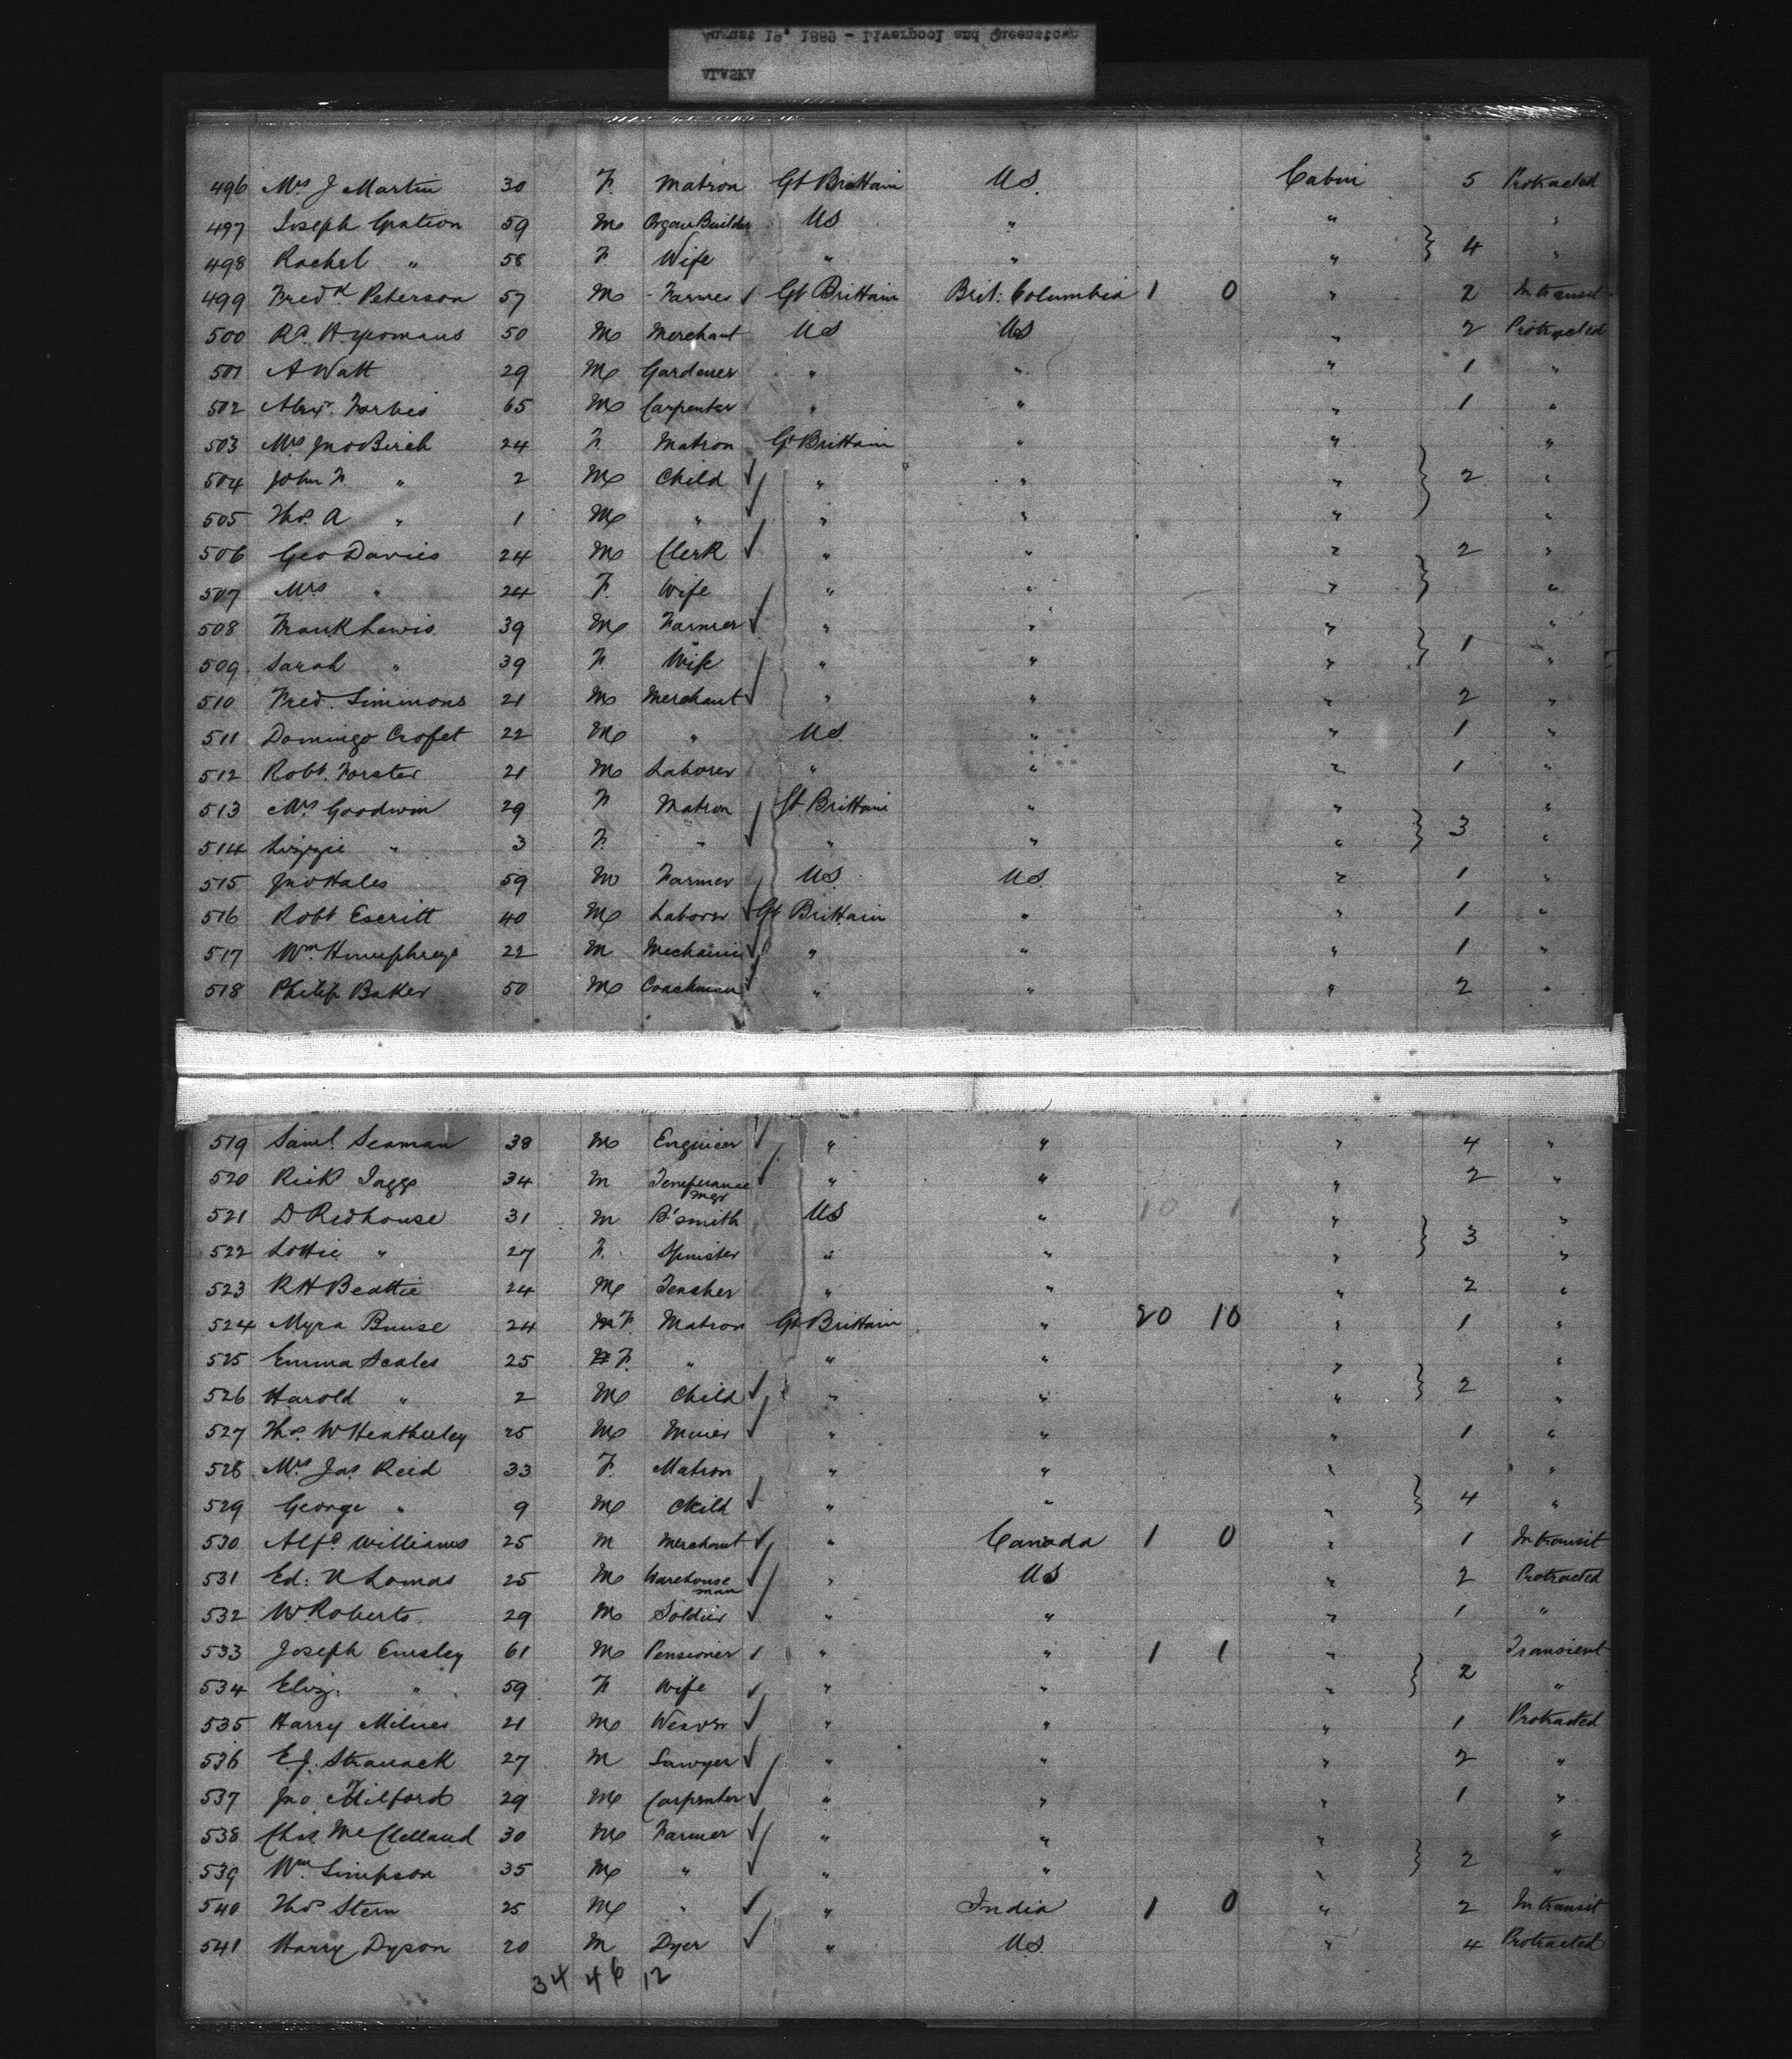 August 19, 1889 - Liverpool and Queenstown
ALASKA
496 Mrs J Martin 30 F. Matron Gt Brittain U.S. Cabin 5 Protracted
497 Joseph 59 M Organ Builder US " " "
498 Rachel " 58 F. Wife " " " } 4 "
499 Fredk Peterson 57 M Farmer Gt Brittain Brit: Columbia 1 0 " 2 Intransit
500 50 M Merchant US US " 2 Protracted
501 A Watt 29 M Gardener " " " 1 "
502 Alexr. Forbes 65 M Carpenter " " " 1 "
503 Mrs Jno Birch 24 F. Matron Gt Brittain " " "
504 John F. " 2 M Child " " " } 2 "
505 Thos. A " 1 M " " " " "
506 Geo Davies 24 M Clerk " " " } 2 "
507 Mrs " 24 F. Wife " " " "
508 Frank Lewis 39 M Farmer " " " } 1 "
509 Sarah " 39 F. Wife " " " "
510 Fred. Simmons 21 M Merchant " " " 2 "
511 Domingo 22 M " U.S. " " 1 "
512 Robt. Forster 21 M Laborer " " " 1 "
513 Mrs Goodwin 29 F Matron Gt Brittain " " "
514 Lizzie " 3 F. " " " " } 3 "
515 Jno Hales 59 M Farmer U.S. U.S. " 1 "
516 Robt Escritt 40 M Laborer Gt Brittain " " 1 "
517 Wm. Humphreys 22 M Mechanic " " " 1 "
518 Philip Baker 50 M Coachman " " " 2 "
519 Saml. Seaman 38 M Engineer " " " 4 "
520 34 M Temperance mgr " " " 2 "
521 D Redhouse 31 M B'smith US " 10 1 " "
522 Lottie " 27 F. Spinster " " " } 3 "
523 R H Beattie 24 M Teacher " " " 2 "
524 Myra 24 F. Matron Gt Brittain " 20 10 " 1 "
525 Emma Scales 25 F. " " " " "
526 Harold " 2 M Child " " " } 2 "
527 Thos. W Heatherley 25 M Miner " " " 1 "
528 Mrs Jas Reid 33 F. Matron " " " "
529 George " 9 M Child " " " } 4 "
530 Alfd. Williams 25 M Merchant " Canada 1 0 " 1 Intransit
531 Ed: Lomas 25 M Warehouse man " US " 2 Protracted
532 W. Roberts 29 M Soldier " " " 1 "
533 Joseph Emsley 61 M Pensioner " " 1 1 " Transient
534 Eliz. " 59 F Wife " " " } 2 "
535 Harry Milnes 21 M Weaver " " " 1 Protracted
536 E.J. 27 M Sawyer " " " 2 "
537 Jno. 29 M Carpenter " " " 1 "
538 Chas McClelland 30 M Farmer " " " "
539 Wm Simpson 35 M " " " " } 2 "
540 Thos Stern 25 M " " India 1 0 " 2 In transit
541 Harry Dyson 20 M Dyer " U.S. " 4 Protracted
34 46 12